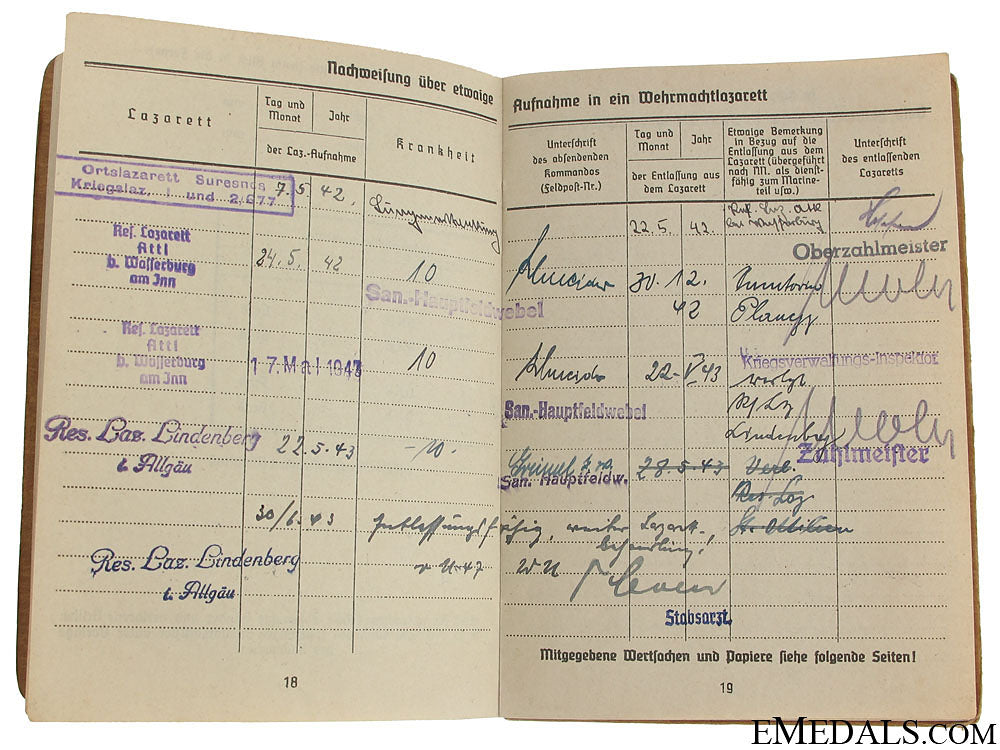 Nachweisung über etwaige
Lazarett
Tag und Monat
Jahr
der Laz.-Aufnahme
Krankheit
Ortslazarett Suresnes
Kriegslaz. I und 2/677
7.5. 42.
Ref. Lazarett
Attl
b. Wasserburg
am Inn
24.5. 42
10
San.-Hauptfeldwebel
Ref. Lazarett
Attl
b. Wasserburg
am Inn
17. Mai 1943
10
Res. Laz. Lindenberg
i. Allgäu
22.5.43
-10.
30/6. 43
Entlassungsfähig, weiter Lazarett-
behandlung.
Res. Laz. Lindenberg
i. Allgäu
18
Aufnahme in ein Wehrmachtlazarett
Unterschrift
des absendenden
Kommandos
(Feldpost-Nr.)
Tag und Monat
Jahr
der Entlassung aus
dem Lazarett
Etwaige Bemerkung
in Bezug auf die
Entlassung aus dem
Lazarett (übergeführt
nach NN. als dienst-
fähig zum Marine-
teil usw.)
Unterschrift
des entlassenden
Lazaretts
22.5. 42.
Wasserburg
Oberzahlmeister
30. 12.
42
Kriegsverwaltungs-Inspektor
22. V 43
verlegt
Lindenberg
San.-Hauptfeldwebel
Zahlmeister
28.5.43
San. Hauptfeldw.
Stabsarzt.
Mitgegebene Wertsachen und Papiere siehe folgende Seiten!
19
EMEDALS.COM